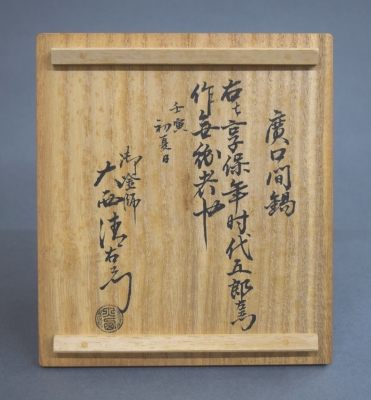 廣口間鍋
右者享保年時代五郎左衛門
作無紛者也
壬寅
初夏日
御釜師
大西清右衛門